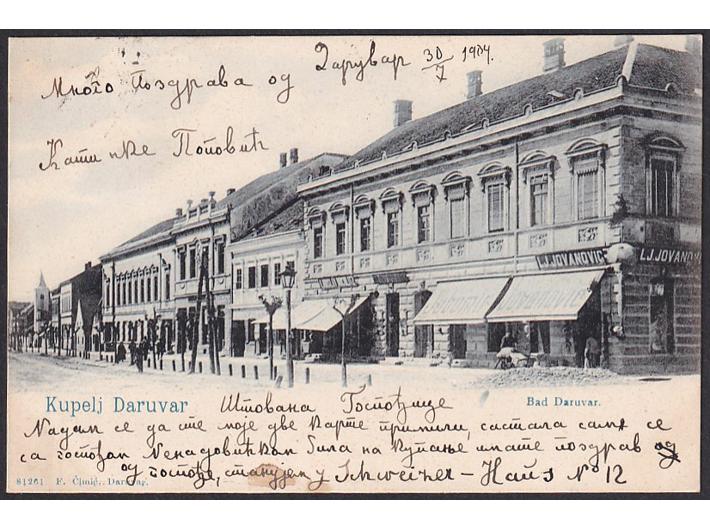 Много поздрава од Дарувар 30/7 1904.
Катинке Поповић
LJ. JOVANOVIĆ
LJ. JOVANOVI
Kupelj Daruvar
Bad Daruvar.
Штована Госпођице
Надам се да сте моје две карте примили, састала сам се
са госпођом Ненадовићком била на купање имате поздрав од
од госпође, станујем у Schweizer – Haus No 12
81261 F. Čimić, Daruvar.